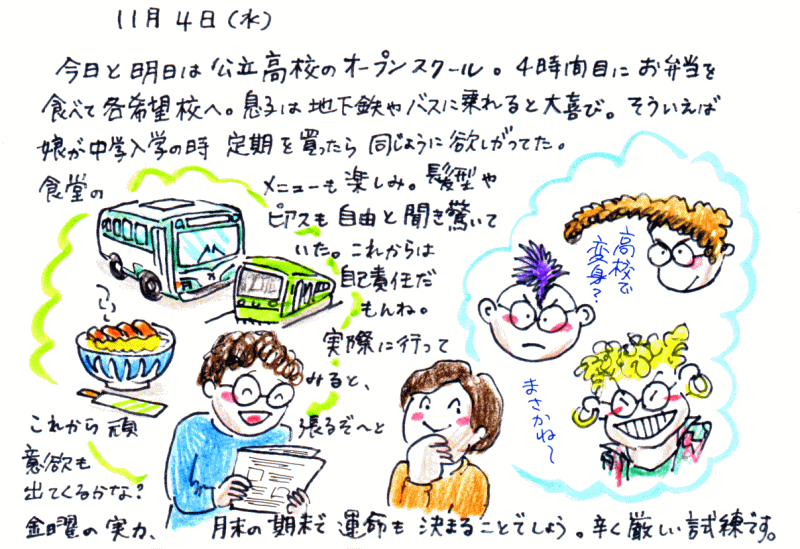 11月4日(水)
今日と明日は公立高校のオープンスクール。4時間目にお弁当を
食べて各希望校へ。息子は地下鉄やバスに乗れると大喜び。そういえば
娘が中学入学の時 定期を買ったら 同じように欲しがってた。
食堂の メニューも楽しみ。髪型や
ピアスも自由と聞き驚いて
いた。これからは
自己責任だ
もんね。
実際に行って
みると、
これから頑張るぞ〜と
意欲も
出てくるかな?
金曜の実力、月末の期末で運命も決まることでしょう。辛く厳しい試練です。
高校で
変身?
まさかね〜